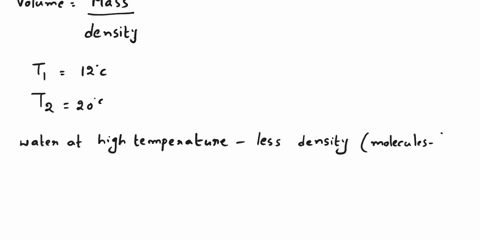 Volume = Mass
density
T1 = 12°c
T2 = 20°c
water at high temperature - less density (molecules-